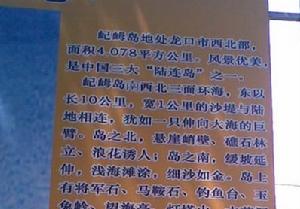 屺㟂岛地处龙口市西北部，
面积4.078平方公里。风景优美，
是中国三大“陆连岛”之一。
屺㟂岛南西北三面环海，东以
长10公里，宽1公里的沙堤与陆
地相连，犹如一只伸向大海的巨
臂。岛之北，悬崖峭壁、礁石林
立、浪花诱人；岛之南，缓坡延
伸，浅海滩涂，细沙如金。岛上
有将军石、马鞍石、钓鱼台、玉